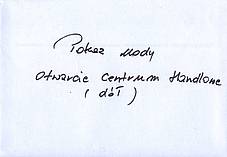 Pokaz mody
otwarcie centrum Handlowe
( dół )